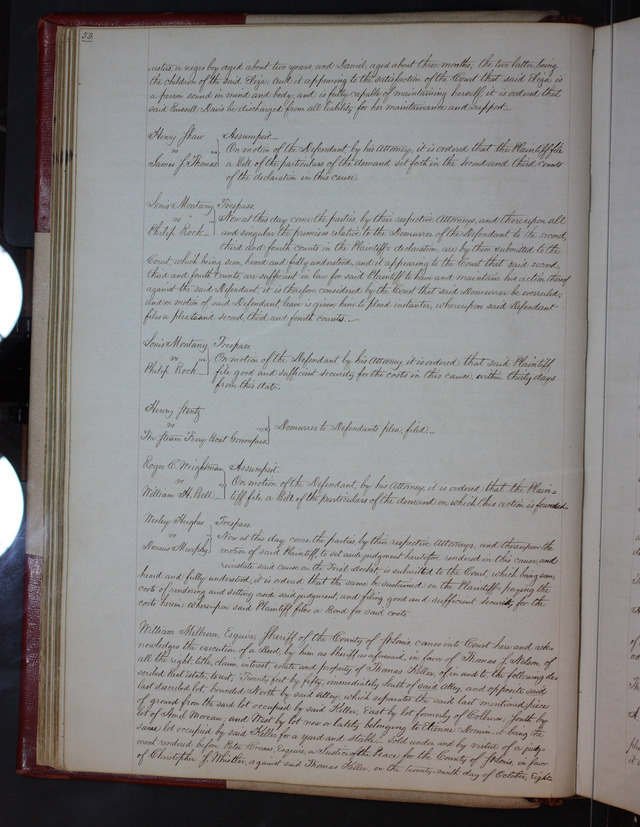 59
ustus, a negro boy aged about two years, and Daniel, aged about three months, the two latter being
the children of the said Eliza. And it appearing to the satisfaction of the Court that said Eliza is
a person sound in mind and body, and is fully capable of maintaining herself, it is ordered that
said Russell Davis be discharged from all liability for her maintainance and support.
Henry Shaw
vs
James J. Thomas
Assumpsit
On motion of the Defendant, by his Attorney, it is ordered that the Plaintiff file
a Bill of the particulars of the demand set forth in the second and third counts
of the declaration in this cause.
Louis Montany
vs
Philip Rock
Trespass.
Now at this day come the parties, by their respective Attorneys, and thereupon all
and singular the premises relative to the Demurrer of the Defendant to the second,
third and fourth counts in the Plaintiff's declaration, are by them submitted to the
Court, which being seen, heard and fully understood, and it appearing to the Court that said second,
third and fourth Counts are sufficient in law for said Plaintiff to have and maintain his action thereof
against the said Defendant, it is therefore considered by the Court that said Demurrer be overruled;
and on motion of said Defendant leave is given him to plead instanter, whereupon said Defendant
files a plea to said second, third and fourth counts.
Louis Montany
vs
Philip Rock
Trespass
On motion of the Defendant by his Attorney, it is ordered that said Plaintiff,
file good and sufficient security for the costs in this cause, within thirty days
from this date.
Henry Stentz
vs
The Steam Ferry Boat Crampus
Demurrer to Defendants plea, filed.
Roger C. Weightman
vs
William H. Bell
Assumpsit.
On motion of the Defendant, by his Attorney, it is ordered that the Plain-
tiff file a Bill of the particulars of the demand on which this action is founded.
Wesley Hughes
vs
Dennis Murphy
Trespass.
Now at this day come the parties by their respective Attorneys, and thereupon the
motion of said Plaintiff, to set aside judgment heretofore rendered in this cause, and
reinstate said cause on the Trial Docket, is submitted to the Court, which being seen,
heard and fully understood, it is ordered that the same be sustained on the Plaintiff's paying the
costs of rendering and setting aside said judgment, and filing good and sufficient security for the
costs herein: whereupon said Plaintiff files a Bond for said costs
William Milburn, Esquire, Sheriff of the County of St. Louis, comes into Court here and ack-
nowledges the execution of a Deed by him as Sheriff as aforesaid, in favor of Thomas J. Nelson, of
all the right, title, claim, interest, estate and property of Thomas Keller, of, in and to the following de-
scribed Real Estate, to wit, Twenty feet by fifty, immediately South of said Alley, and opposite said
last described lot, bounded North by said Alley, which separates the said last mentioned piece
of ground from the said lot occupied by said Keller, East by lot formerly of Colburn, South by
lot of Moreau, and West by lot now or lately belonging to being the
same lot occupied by said Keller for a yard and stable. Sold under and by virtue of a judg-
ment rendered before Peter Esquire, a Justice of the Peace for the County of St. Louis, in favor
of Christopher J. Whistler, against said Thomas Keller, on the twenty-ninth day of October, Eight-